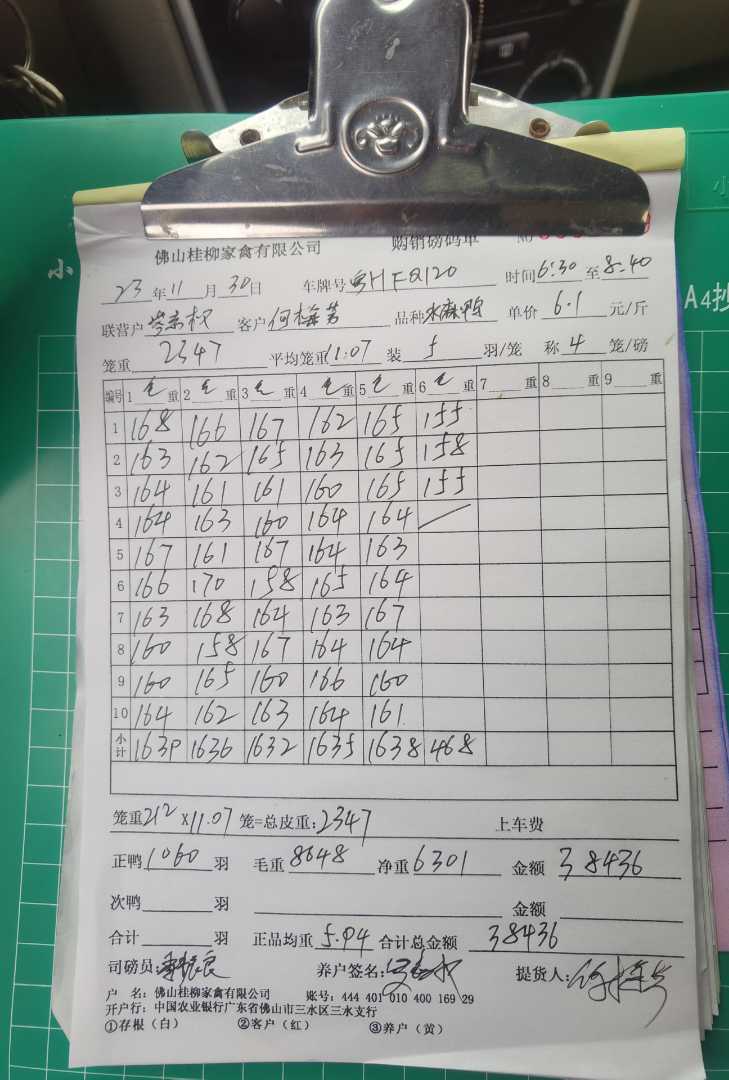 佛山桂柳家禽有限公司 购销磅码单 NO
23 年 11 月 30 日 车牌号 粤HFQ120 时间 6:30 至 8:40
联营户 岑京权 客户 何梅芳 品种 水麻鸭 单价 6.1 元/斤
笼重 2347 平均笼重 11.07 装 5 羽/笼 称 4 笼/磅
编号 1 毛 重 2 毛 重 3 毛 重 4 毛 重 5 毛 重 6 毛 重 7 重 8 重 9 重
1 168 166 167 162 165 155
2 163 162 165 163 165 158
3 164 161 161 160 165 155
4 164 163 160 164 164
5 167 161 167 164 163
6 166 170 158 165 164
7 163 168 164 163 167
8 160 158 167 164 164
9 160 165 160 166 160
10 164 162 163 164 161
小计 1639 1636 1632 1635 1638 468
笼重 212 x11.07 笼=总皮重:2347 上车费
正鸭 1060 羽 毛重 8648 净重 6301 金额 38436
次鸭 羽 金额
合计 羽 正品均重 5.94 合计总金额 38436
司磅员: 养户签名: 提货人:
户 名: 佛山桂柳家禽有限公司 账号: 444 401 010 400 169 29
开户行: 中国农业银行广东省佛山市三水区三水支行
①存根(白) ②客户(红) ③养户(黄)
小
A4抄